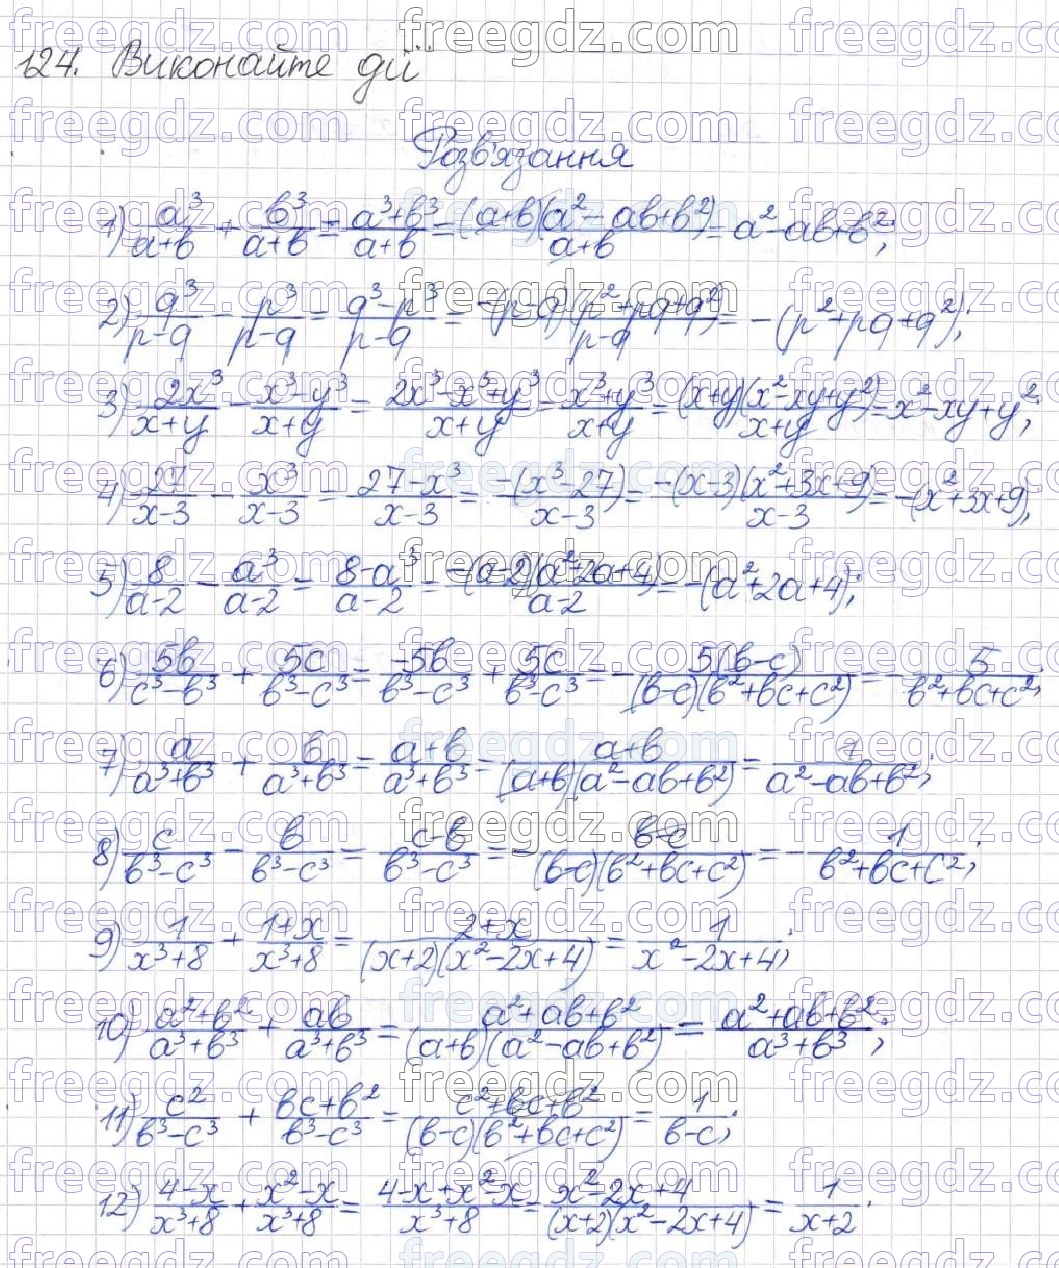 124. Виконайте дії
Розв'язання
1) a³/(a+b) + b³/(a+b) = (a³+b³)/(a+b) = (a+b)(a²-ab+b²)/(a+b) = a²-ab+b²;
2) q³/(p-q) - p³/(p-q) = (q³-p³)/(p-q) = -(p-q)(p²+pq+q²)/(p-q) = -(p²+pq+q²);
3) 2x³/(x+y) - (x³-y³)/(x+y) = (2x³-x³+y³)/(x+y) = (x³+y³)/(x+y) = (x+y)(x²-xy+y²)/(x+y) = x²-xy+y²;
4) 27/(x-3) - x³/(x-3) = (27-x³)/(x-3) = -(x³-27)/(x-3) = -(x-3)(x²+3x+9)/(x-3) = -(x²+3x+9);
5) 8/(a-2) - a³/(a-2) = (8-a³)/(a-2) = -(a-2)(a²+2a+4)/(a-2) = -(a²+2a+4);
6) 5b/(c³-b³) + 5c/(b³-c³) = -5b/(b³-c³) + 5c/(b³-c³) = -5(b-c)/((b-c)(b²+bc+c²)) = -5/(b²+bc+c²);
7) a/(a³+b³) + b/(a³+b³) = (a+b)/(a³+b³) = (a+b)/((a+b)(a²-ab+b²)) = 1/(a²-ab+b²);
8) c/(b³-c³) - b/(b³-c³) = (c-b)/(b³-c³) = -(b-c)/((b-c)(b²+bc+c²)) = -1/(b²+bc+c²);
9) 1/(x³+8) + (1+x)/(x³+8) = (2+x)/((x+2)(x²-2x+4)) = 1/(x²-2x+4);
10) (a²+b²)/(a³+b³) + ab/(a³+b³) = (a²+ab+b²)/((a+b)(a²-ab+b²)) = (a²+ab+b²)/(a³+b³);
11) c²/(b³-c³) + (bc+b²)/(b³-c³) = (c²+bc+b²)/((b-c)(b²+bc+c²)) = 1/(b-c);
12) (4-x)/(x³+8) + (x²-x)/(x³+8) = (4-x+x²-x)/(x³+8) = (x²-2x+4)/((x+2)(x²-2x+4)) = 1/(x+2).
freegdz.com